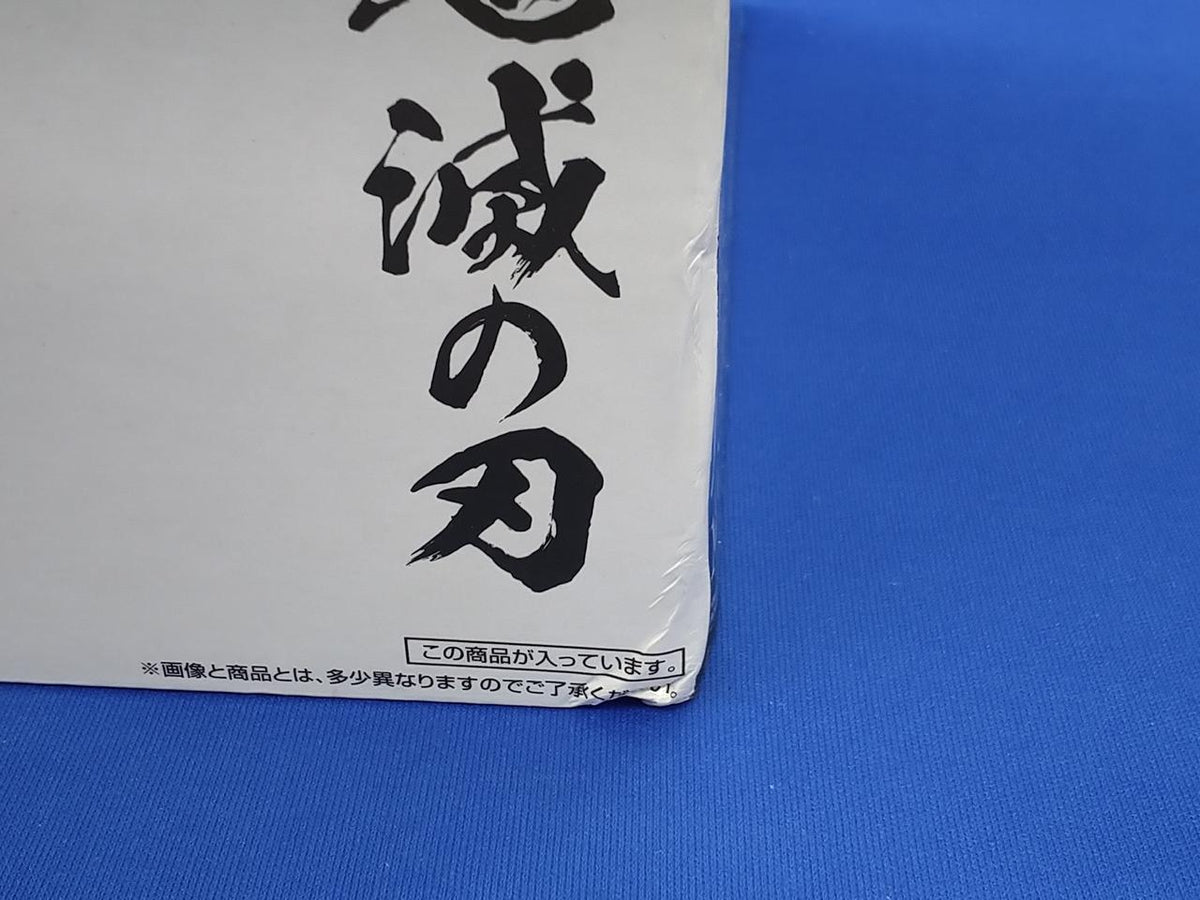 滅の刃
この商品が入っています。
※画像と商品とは、多少異なりますのでご了承くだ